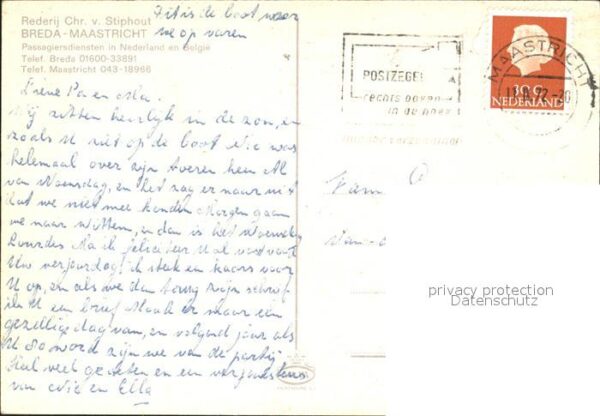 Rederij Chr. v. Stiphout
BREDA-MAASTRICHT
Passagiersdiensten in Nederland en België
Telef. Breda 01600-33891
Telef. Maastricht 043-18966
Dit is de boot waar
we op varen
Lieve Pa en Ma.
Wij zitten heerlijk in de zon, en
zoals U ziet op de boot Nic was
helemaal over zijn toeren heen Al
van Woensdag, en het zag er naar uit
dat we niet mee konden Morgen gaan
we naar Wittem, en dan is het
Lourdes Ma ik feliciteer U al vast
Uw verjaardag ik steek en kaars voor
U op, en als we dan terug zijn schrijf
ik U een brief Maak er maar een
gezellige dag van, en volgend jaar als
U 80 word zijn we van de partij
Heel veel groeten en een
van Nic en Ella
POSTZEGEL
rechts boven
in de hoek
MAASTRICHT
NEDERLAND
Fam
privacy protection
Datenschutz